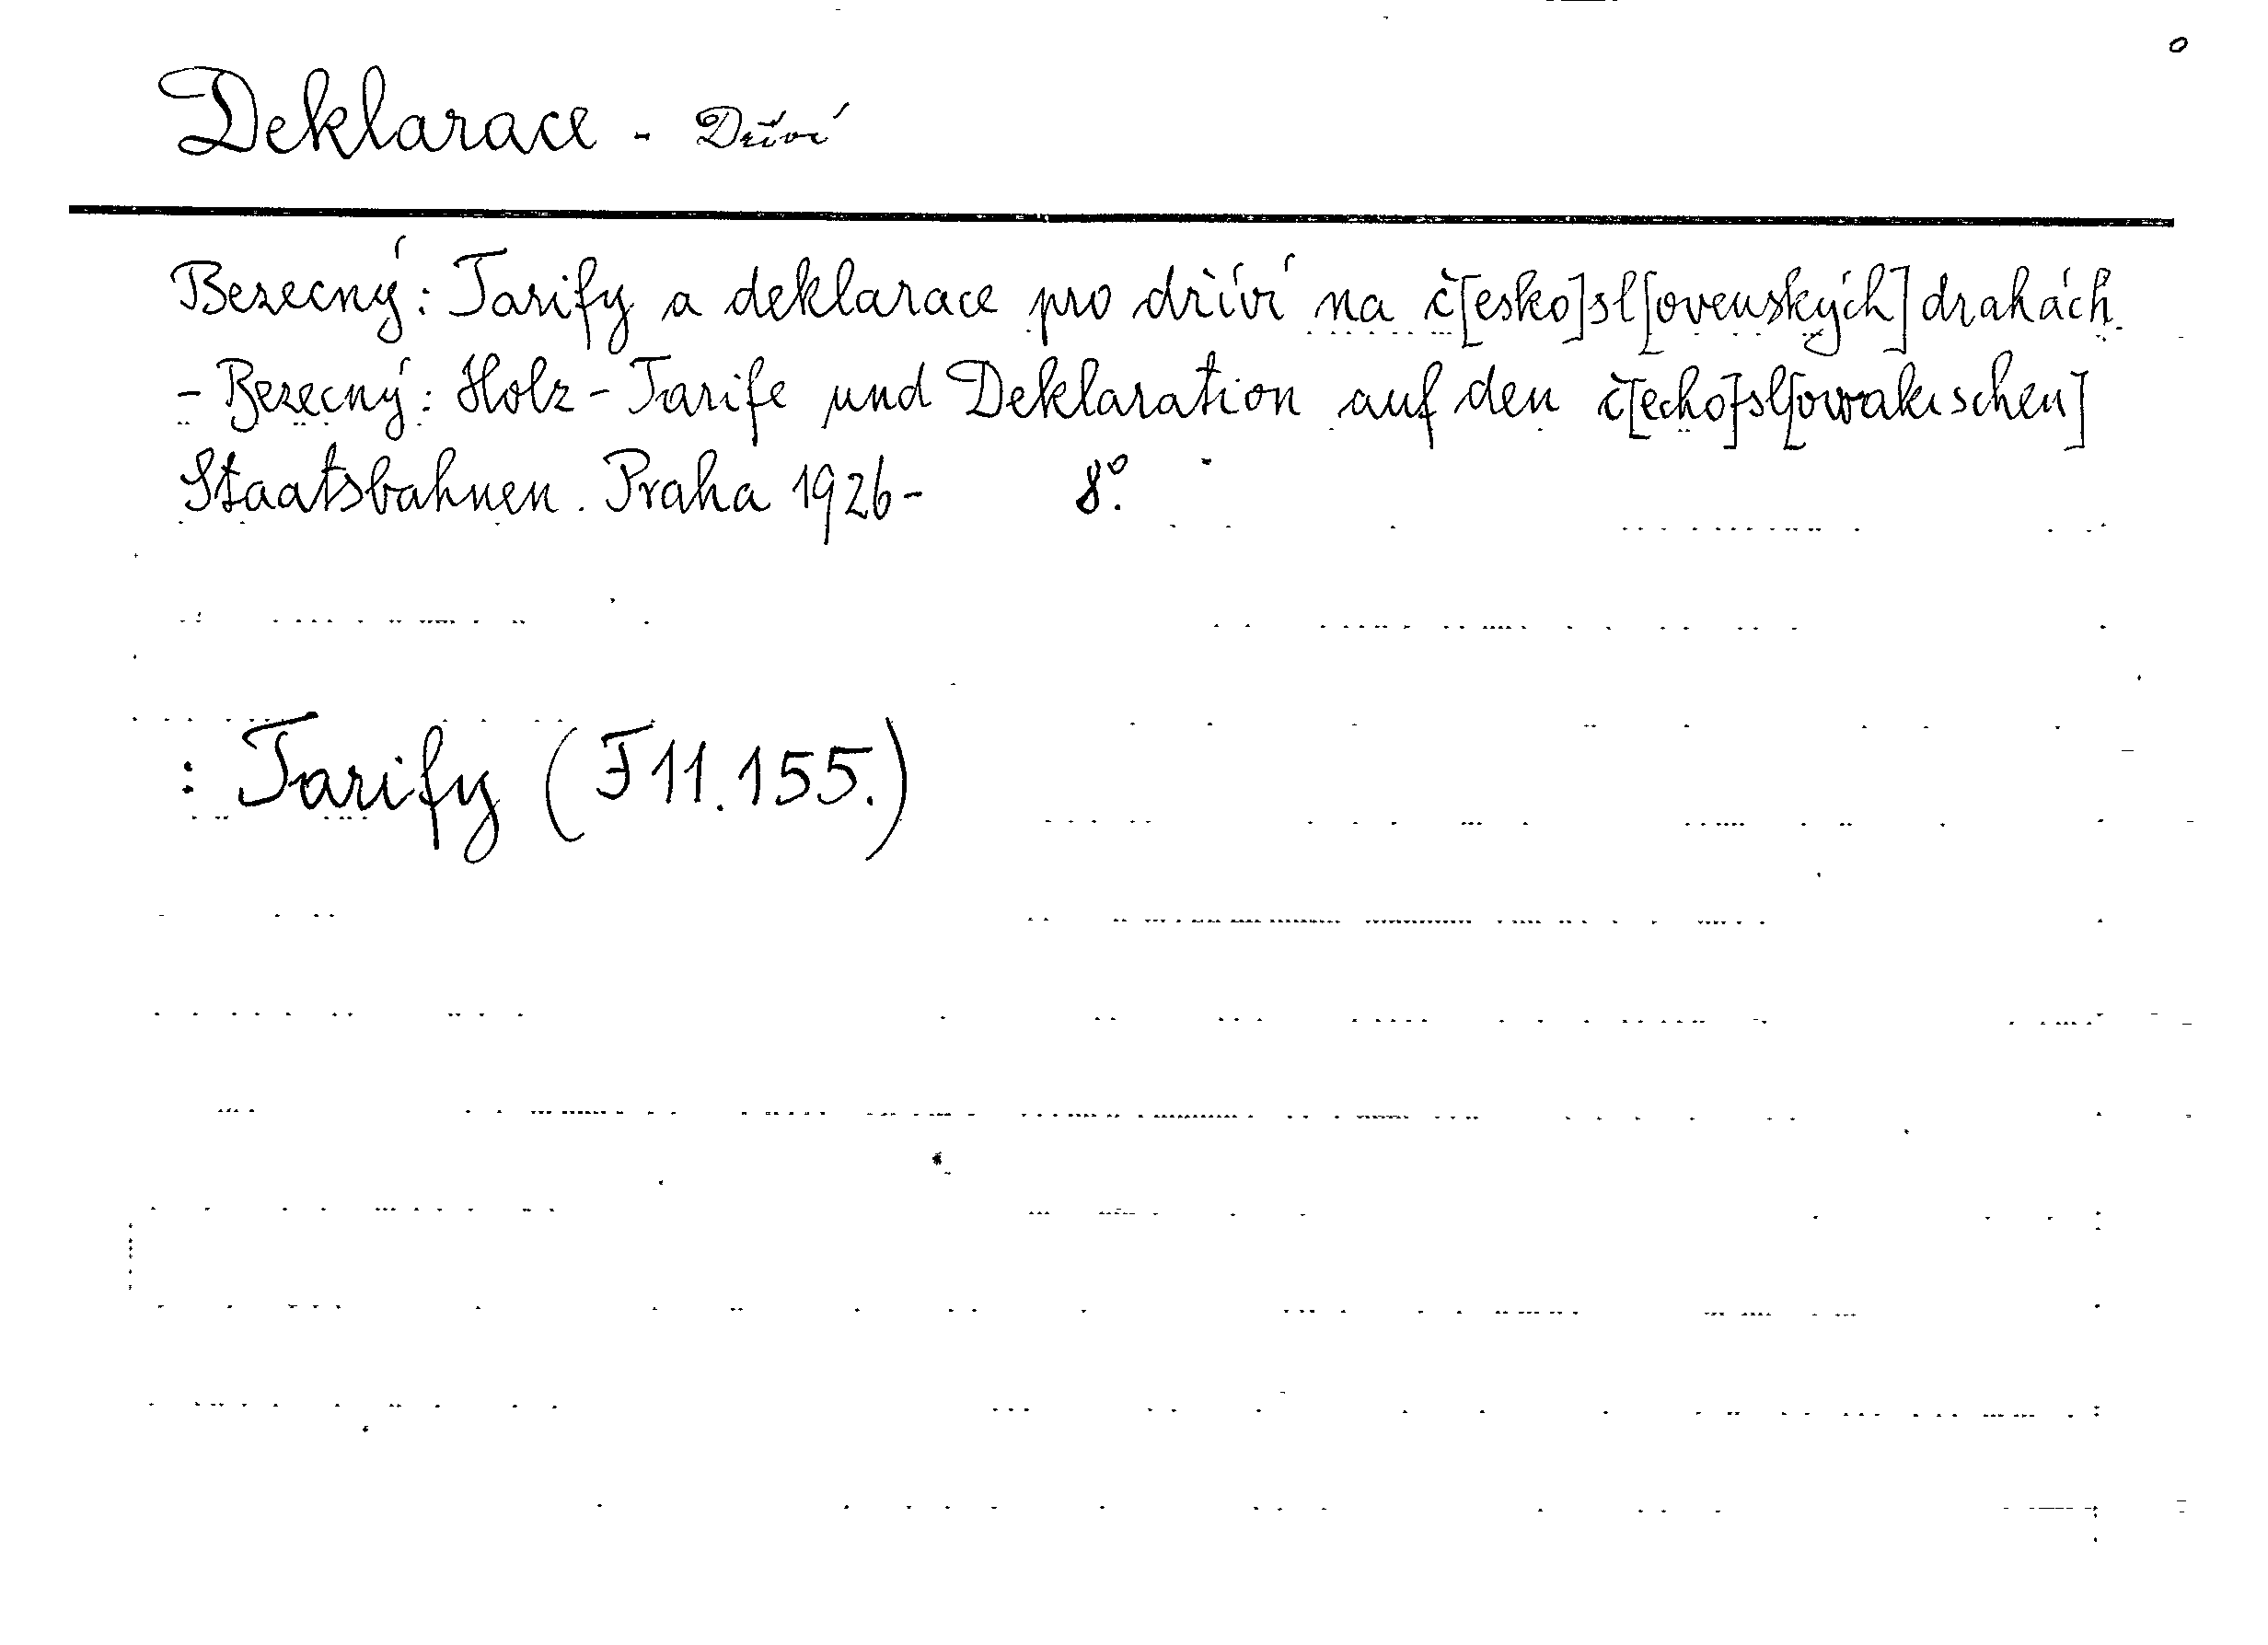 Deklarace - Dříví
Bezecný: Tarify a deklarace pro dříví na č[esko]sl[ovenských] drahách
- Bezecný: Holz-Tarife und Deklaration auf den č[echo]sl[owakischen]
Staatsbahnen. Praha 1926- 8°.
: Tarify (F 11.155.)